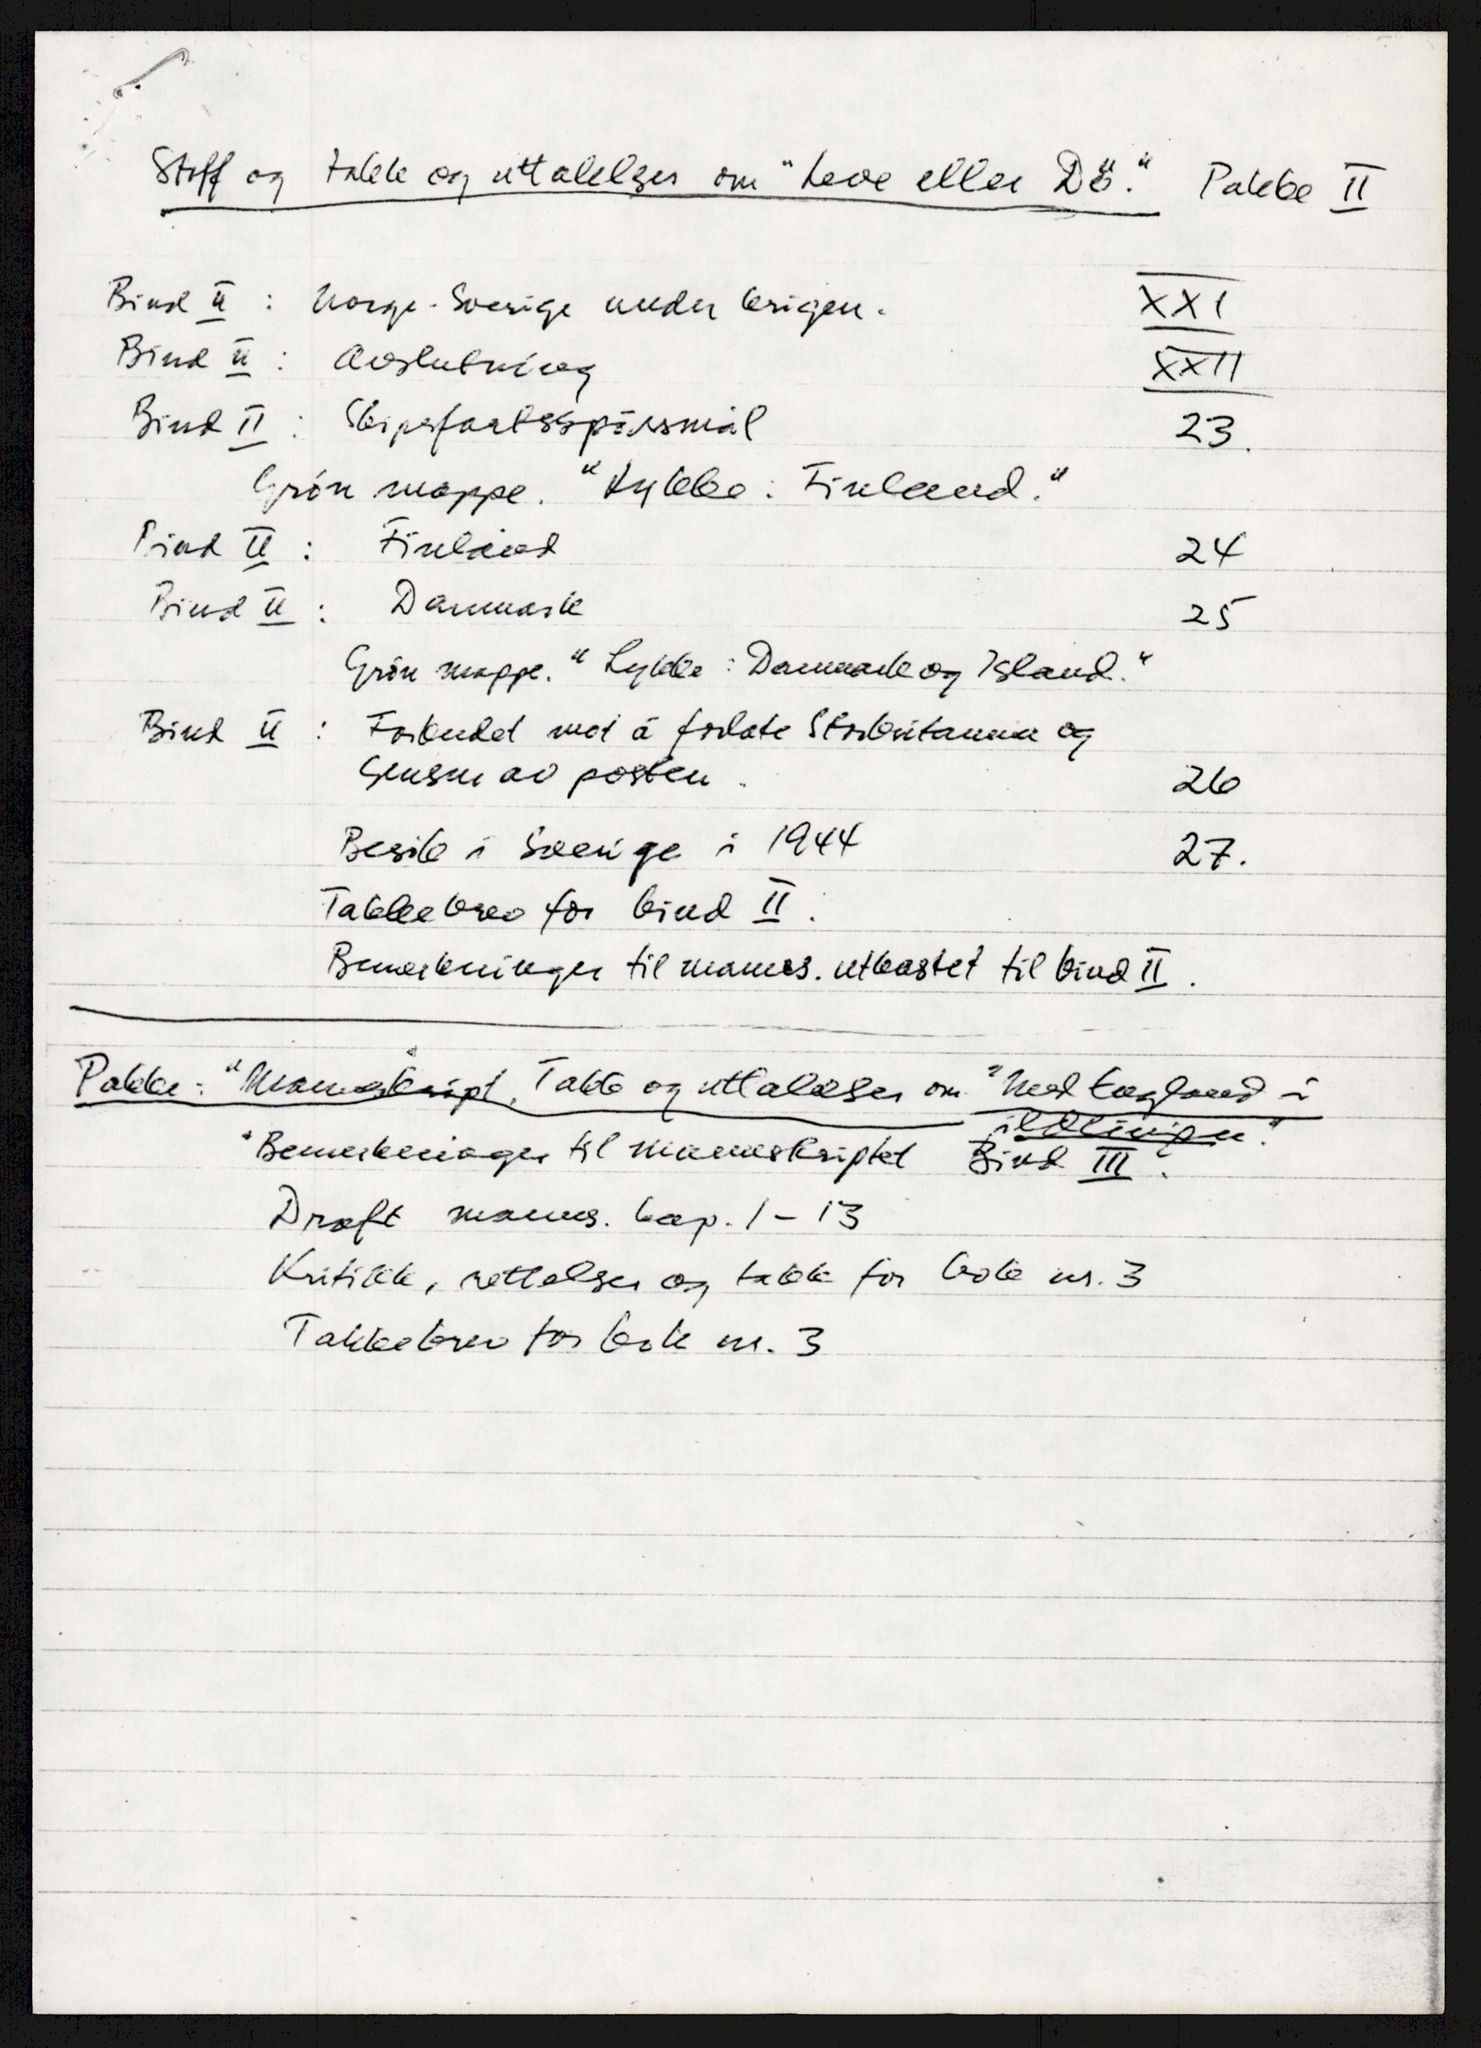 Stoff og takk og uttalelser om "Leve eller Dö." Pakke II
Bind II : Norge-Sverige under krigen. XXI
Bind II : Avslutning XXII
Bind II : Skipsfartsspörsmål 23.
Grön mappe. "Lykke: Finland."
Bind II : Finland 24
Bind II : Danmark 25
Grön mappe. "Lykke: Danmark og Island."
Bind II : Forbudet mot å forlate Storbritannia og
Sensur av posten. 26
Besök i Sverige i 1944 27.
Takkebrev for bind II.
Bemerkninger til manus. utkastet til bind II.
Pakke: "Manuskript, Takk og uttalelser om "Med England i
ildlinjen."
"Bemerkninger til manuskriptet Bind III.
Draft manus. kap. 1-13
Kritikk, rettelser og takk for bok nr. 3
Takkebrev for bok nr. 3